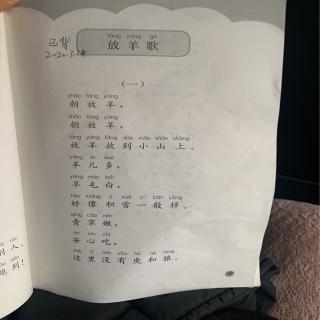 fàng yáng gē
放羊歌
已背
(一)
zhāo fàng yáng
朝放羊，
zhāo fàng yáng
朝放羊，
fàng yáng fàng dào xiǎo shān shàng
放羊放到小山上。
yáng ér duō
羊儿多，
yáng máo bái
羊毛白，
hǎo xiàng jī xuě yì bān yàng
好像积雪一般样。
qīng cǎo nèn
青草嫩，
ān xīn chī
安心吃，
zhè lǐ méi yǒu hǔ hé láng
这里没有虎和狼。
rén
人。
dào
到！